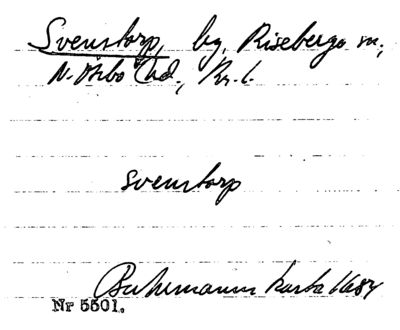 Svenstorp, by, Riseberga sn,
N. Åsbo hd, Kr. l.
Svenstorp
Buhrmanns karta 1684
Nr 5501.